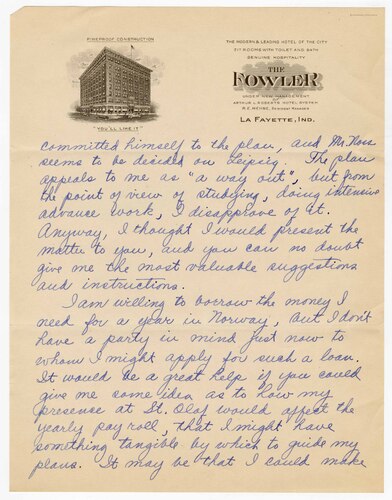 FIREPROOF CONSTRUCTION
"YOU'LL LIKE IT"
THE MODERN & LEADING HOTEL OF THE CITY
217 ROOMS WITH TOILET AND BATH
GENUINE HOSPITALITY
THE
FOWLER
UNDER NEW MANAGEMENT
ARTHUR L. ROBERTS HOTEL SYSTEM
R. E. WEHBE, RESIDENT MANAGER
LA FAYETTE, IND.
committed himself to the plan, and Mr. Ross
seems to be decided on Leipsig. The plan
appeals to me as "a way out", but from
the point of view of studying, doing intensive
advance work, I disapprove of it.
Anyway, I thought I would present the
matter to you, and you can no doubt
give me the most valuable suggestions
and instructions.
I am willing to borrow the money I
need for a year in Norway, but I don't
have a party in mind just now to
whom I might apply for such a loan.
It would be a great help if you could
give me some idea as to how my
presence at St. Olaf would affect the
yearly pay roll, that I might have
something tangible by which to guide my
plans. It may be that I could make